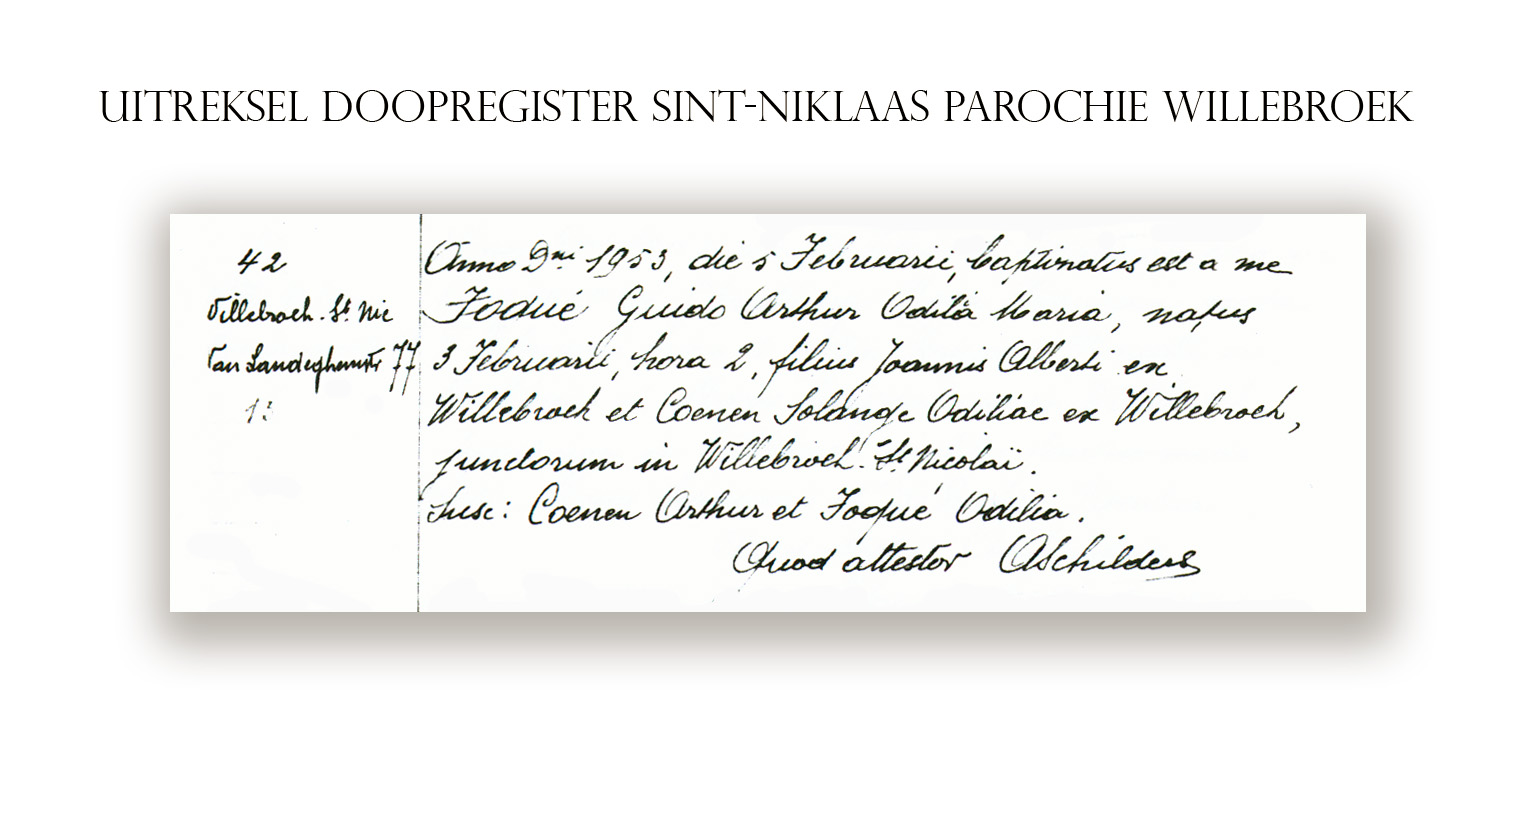 UITREKSEL DOOPREGISTER SINT-NIKLAAS PAROCHIE WILLEBROEK
42
Willebroek. St. Nic
Van Landeghemstr 77
13
Anno Dni 1953, die 5 Februarii, baptizatus est a me
Foqué Guido Arthur Odila Maria, natus
3 Februarii, hora 2, filius Joannis Alberti ex
Willebroek et Coenen Solange Odiliae ex Willebroek,
junctorum in Willebroek. St Nicolaï.
Susc: Coenen Arthur et Foqué Odilia.
Quod attestor ASchilders